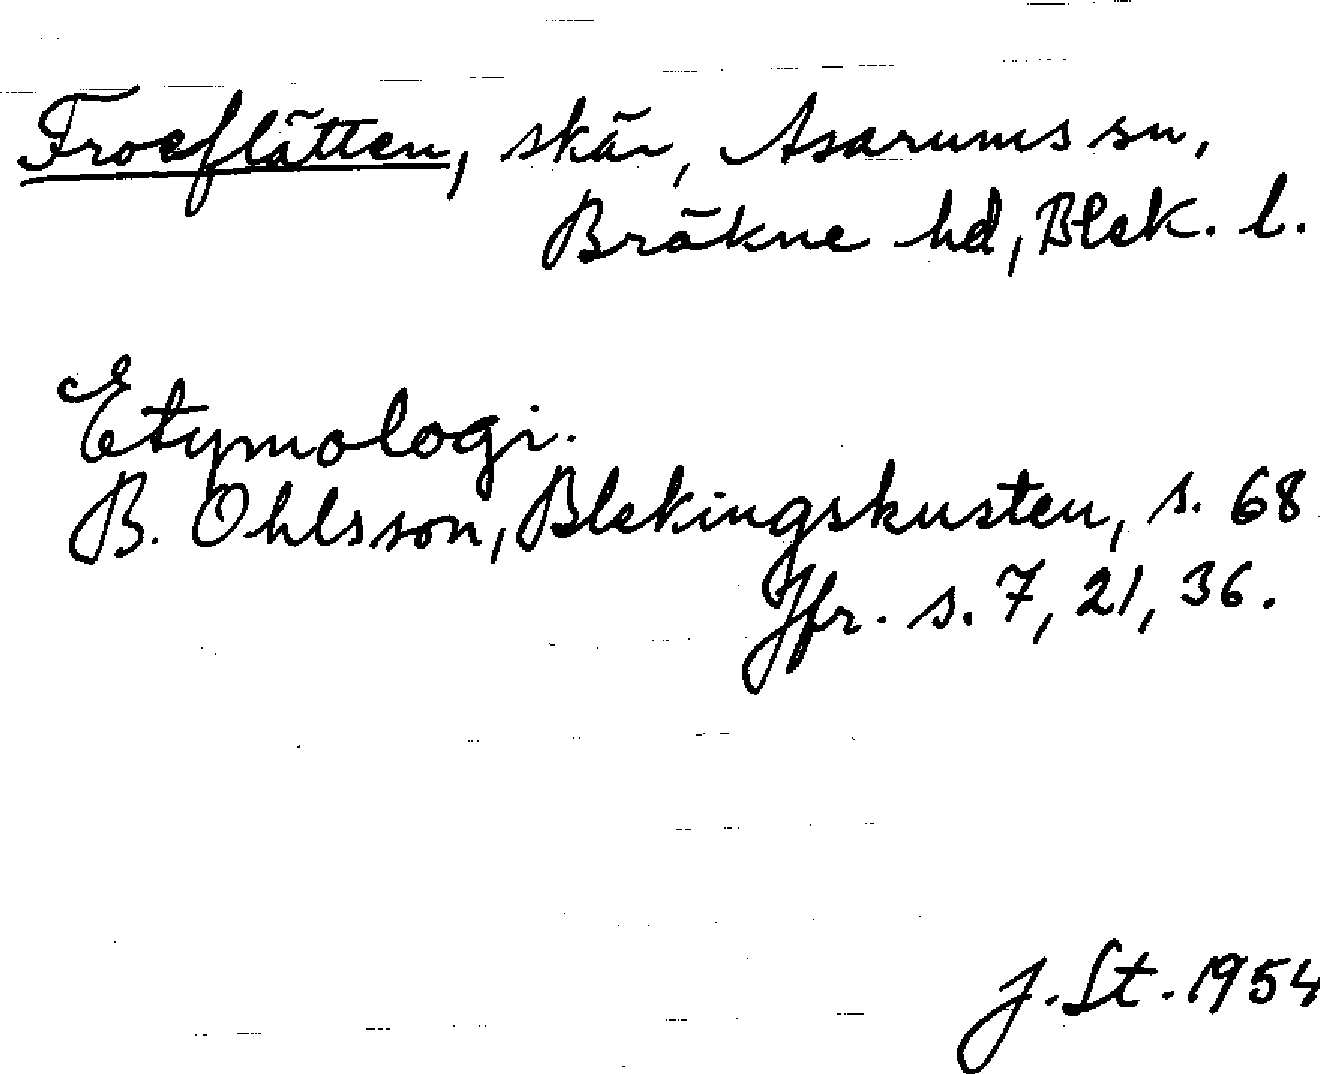 Froeflätten, skär, Asarums sn,
Bräkne hd, Blek. l.
Etymologi.
B. Ohlsson, Blekingskusten, s. 68
Jfr. s. 7, 21, 36.
J. St. 1954